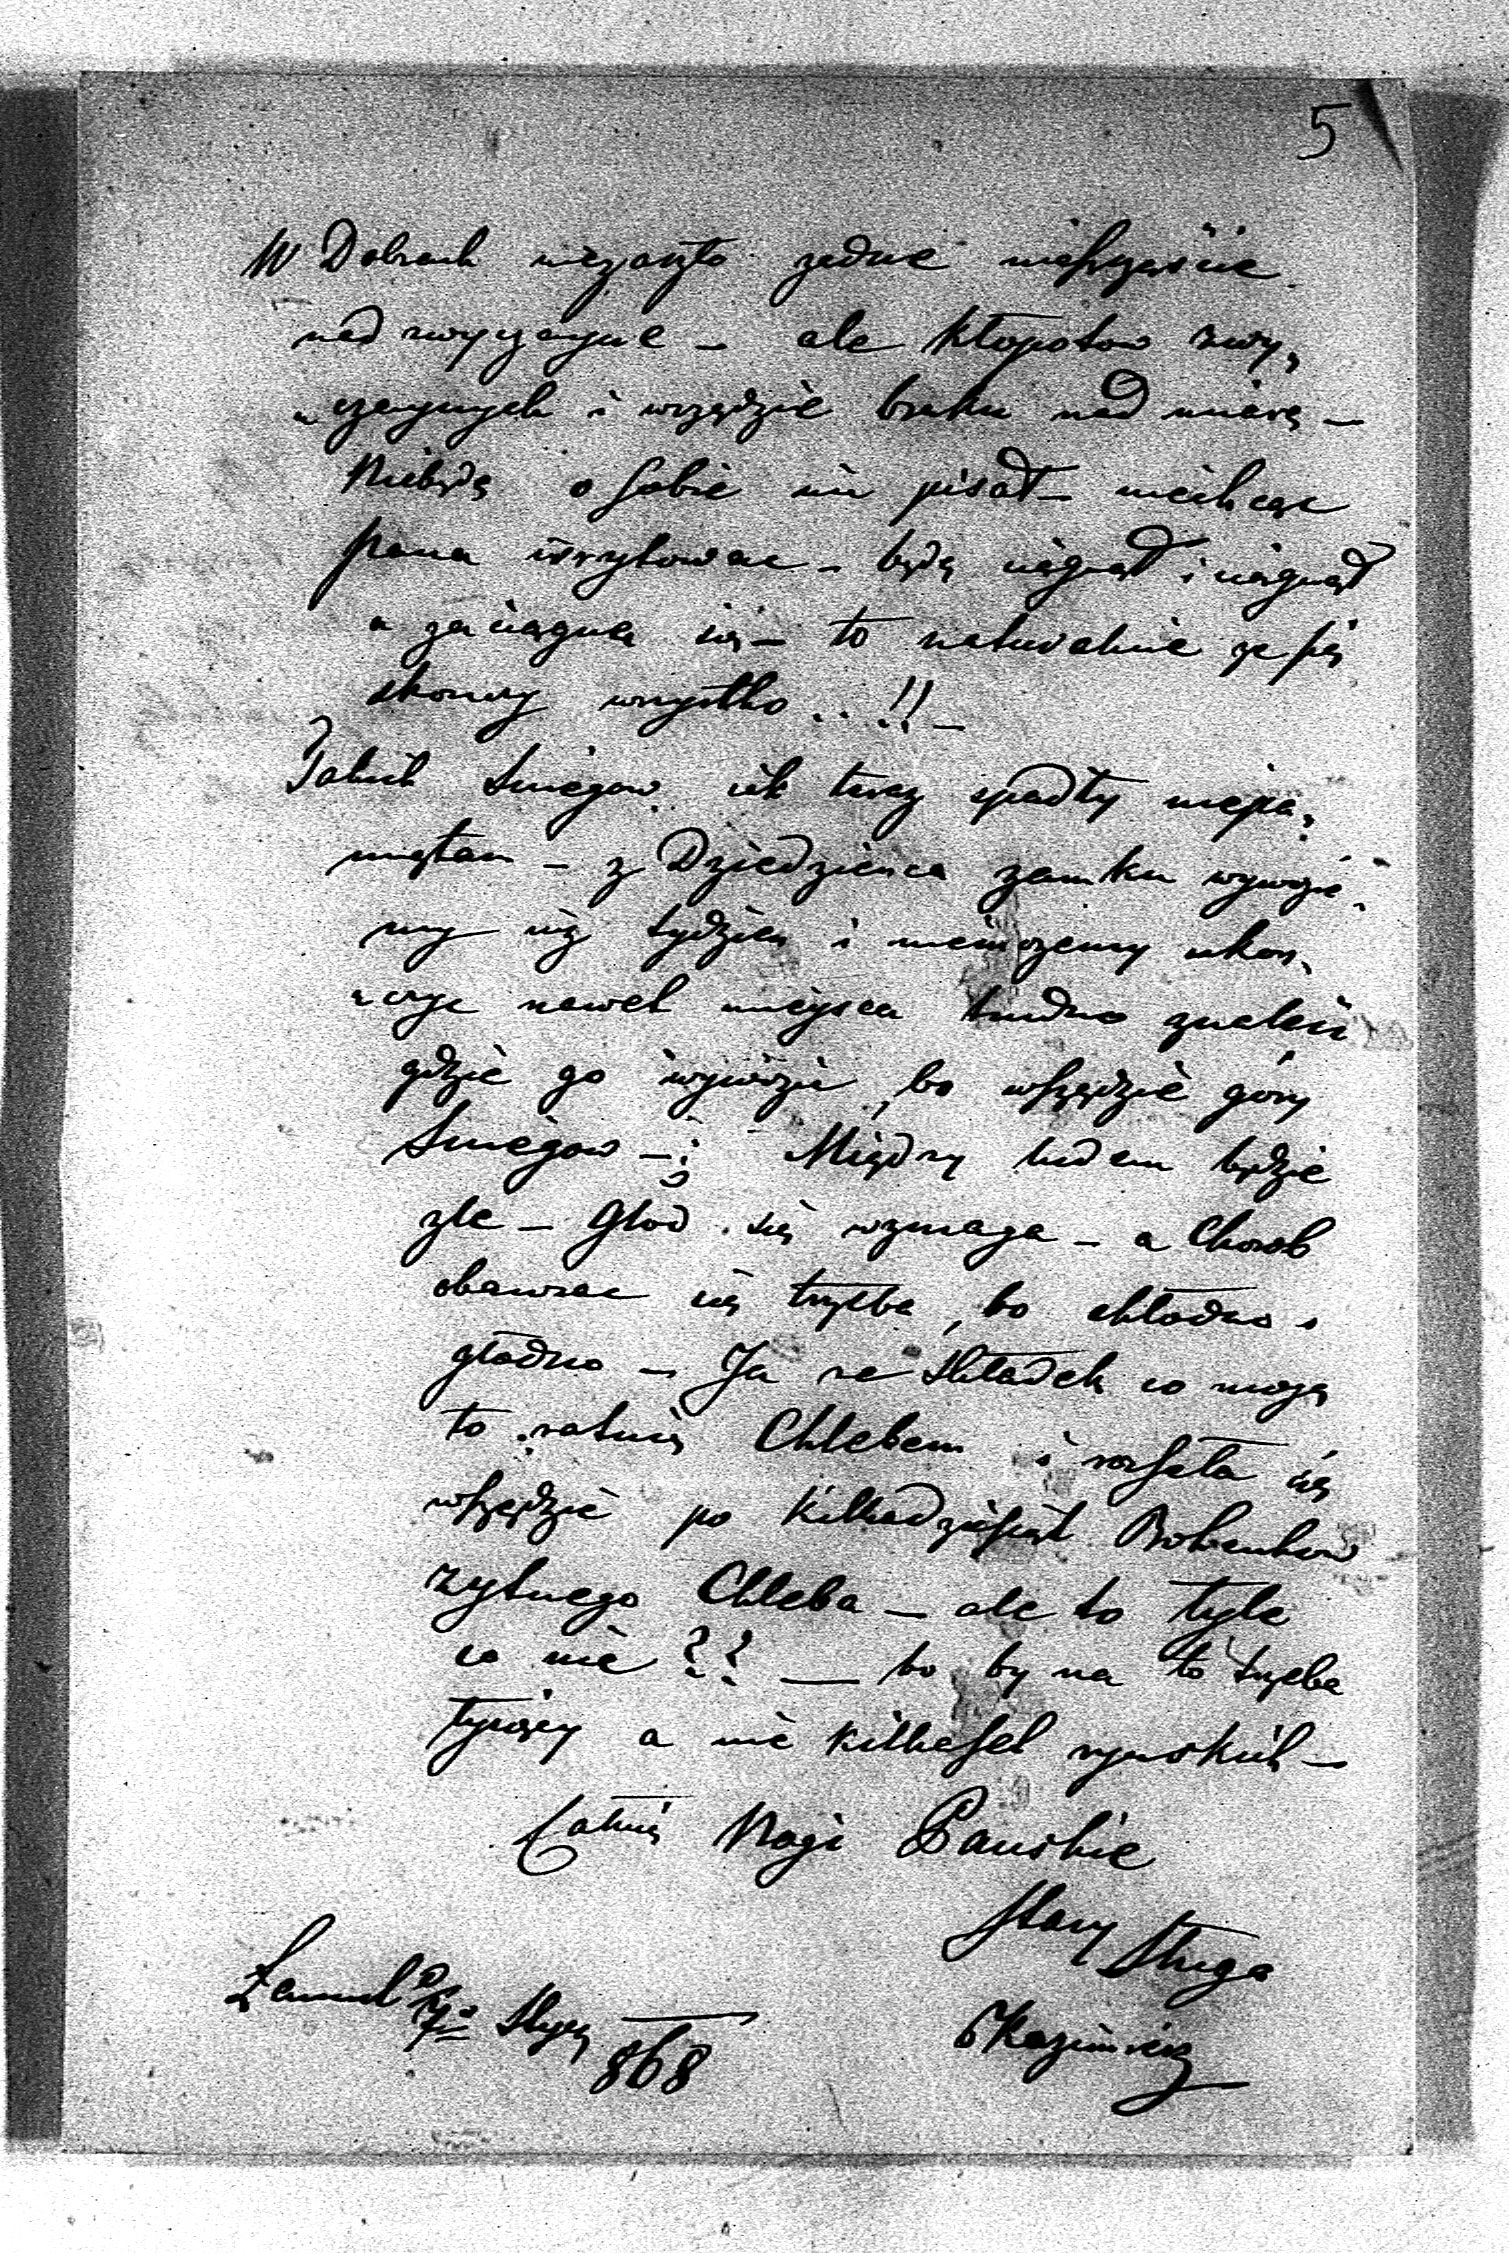 5
W Dobrach niezaszło żadne niesszęście
nad zwyczayne – ale kłopotow zwy„
„czaynych i wszędzie braku nad miarę –
Niebędę o sobie nic pisał – niechcąc
pana irrytowac – będę ciągnął i ciągnął
a zaciągnę się – to naturalnie że się
skonczy wszystko .. !! –
Takich sniegow iak teraz spadły niepa„
miętam – z Dziedzienca zamku wywozie„
my iuż tydzien i niemożemy ukon„
„czyc nawet mieysca trudno znalesc
gdzie go wywozic, bo wszędzie góry
sniegow – ; Między ludem będzie
zle – Głod się wzmaga – a Chorob
obawiac się trzeba, bo chłodno i
głodno – Ja ze składek co mogę
to ratuię Chlebem i rozseła się
wszędzie po kilkadziesiąt Bohenkow
żytnego Chleba – ale to tyle
co nic ?? — bo by na to trzeba
tysięcy a nie kilkaset rynskich –
Całuię Nogi Panskie
Stary Sługa
Kazimirz
Łancut d 7º Stycz 868